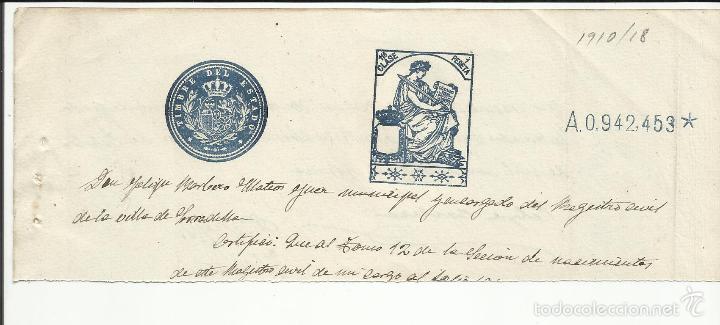 1910/18
TIMBRE DEL ESTADO
10ª CLASE 1 PESETA
A.0.942.453*
Don Felipe Mateos Juez municipal y encargado del Registro civil
de la villa de
Certifico: Que al Tomo 12 de la Sección de nacimientos
de este Registro civil de mi cargo al folio
todocoleccion